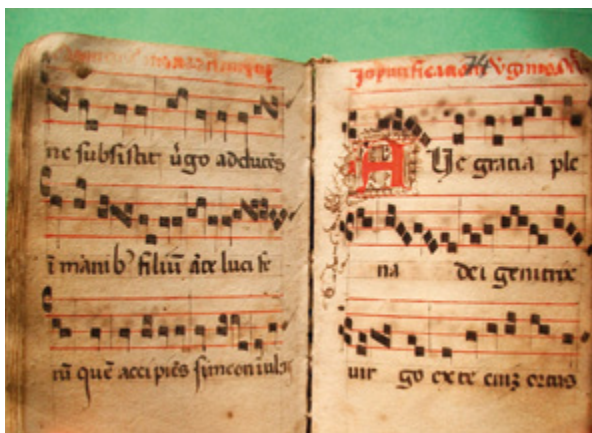 ne subsistit ůgo adducēs
ī manib⁹ filiū āte lucife
rū quē accipiēs simeon
74
AUe gratia ple
na dei genitrix
uir go ex te eniꝫ ortus